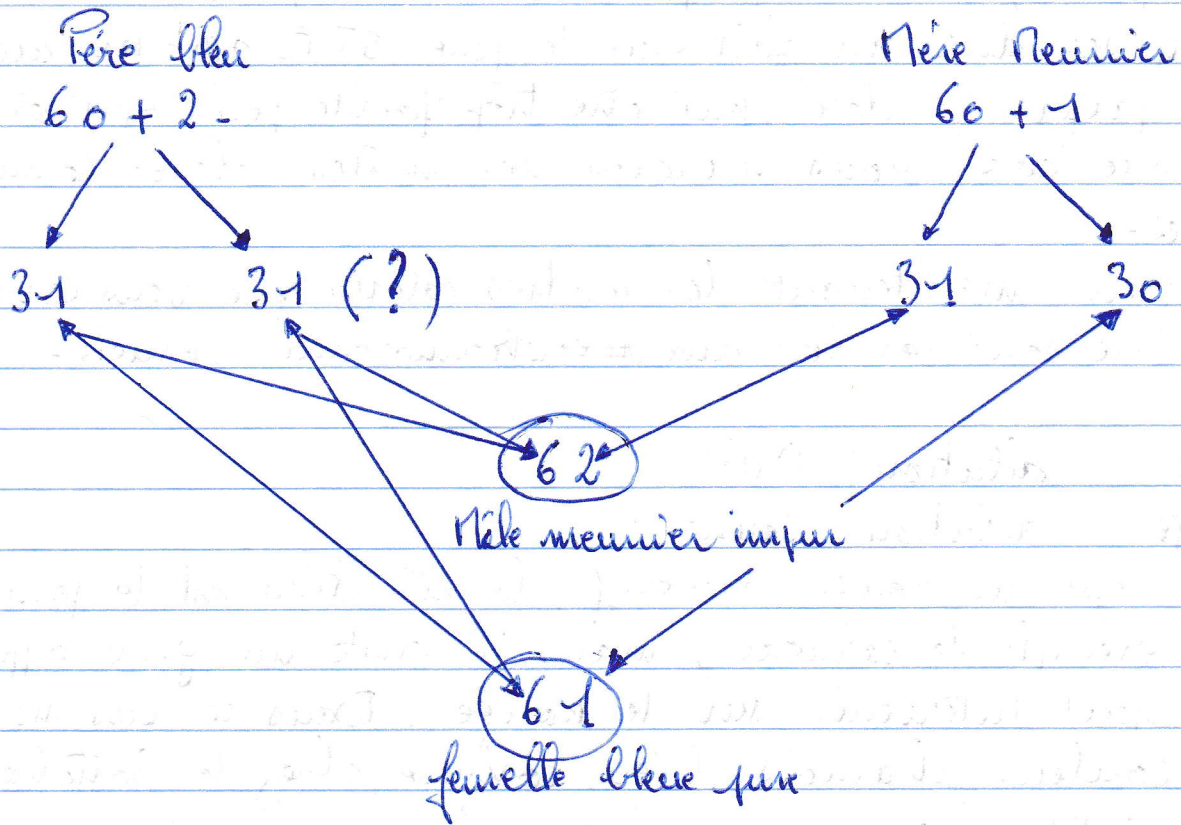 Père bleu Mère Meunier
60 + 2 - 60 + 1
31 31 (?) 31 30
62
Mâle meunier impur
61
femelle bleue pure